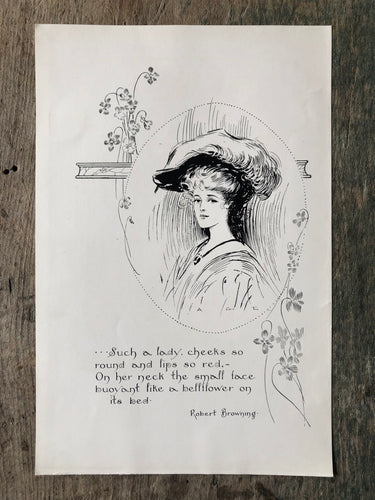 ...Such a lady, cheeks so
round and lips so red,-
On her neck the small face
buoyant like a bellflower on
its bed.
Robert Browning.